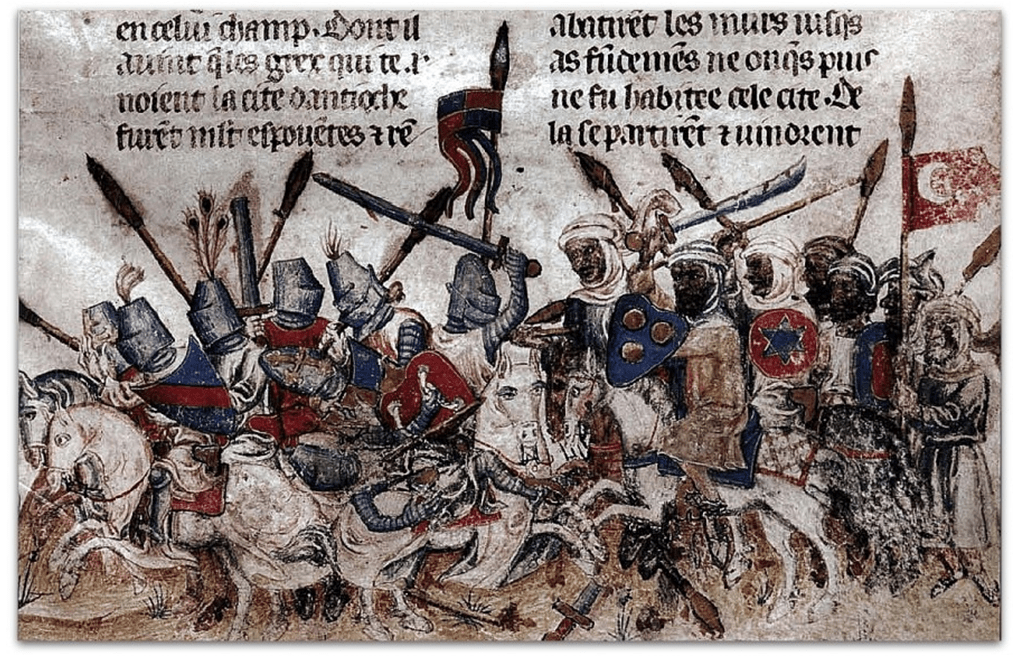 en celui champ. Dont il
auint qles grex qui te
noient la cite dantioche
furēt mlt espouētes ⁊ rē
abatirēt les murs iusqs
as fūdemēs ne onqs puis
ne fu habitee cele cite. De
la se partirēt ⁊ uindrent